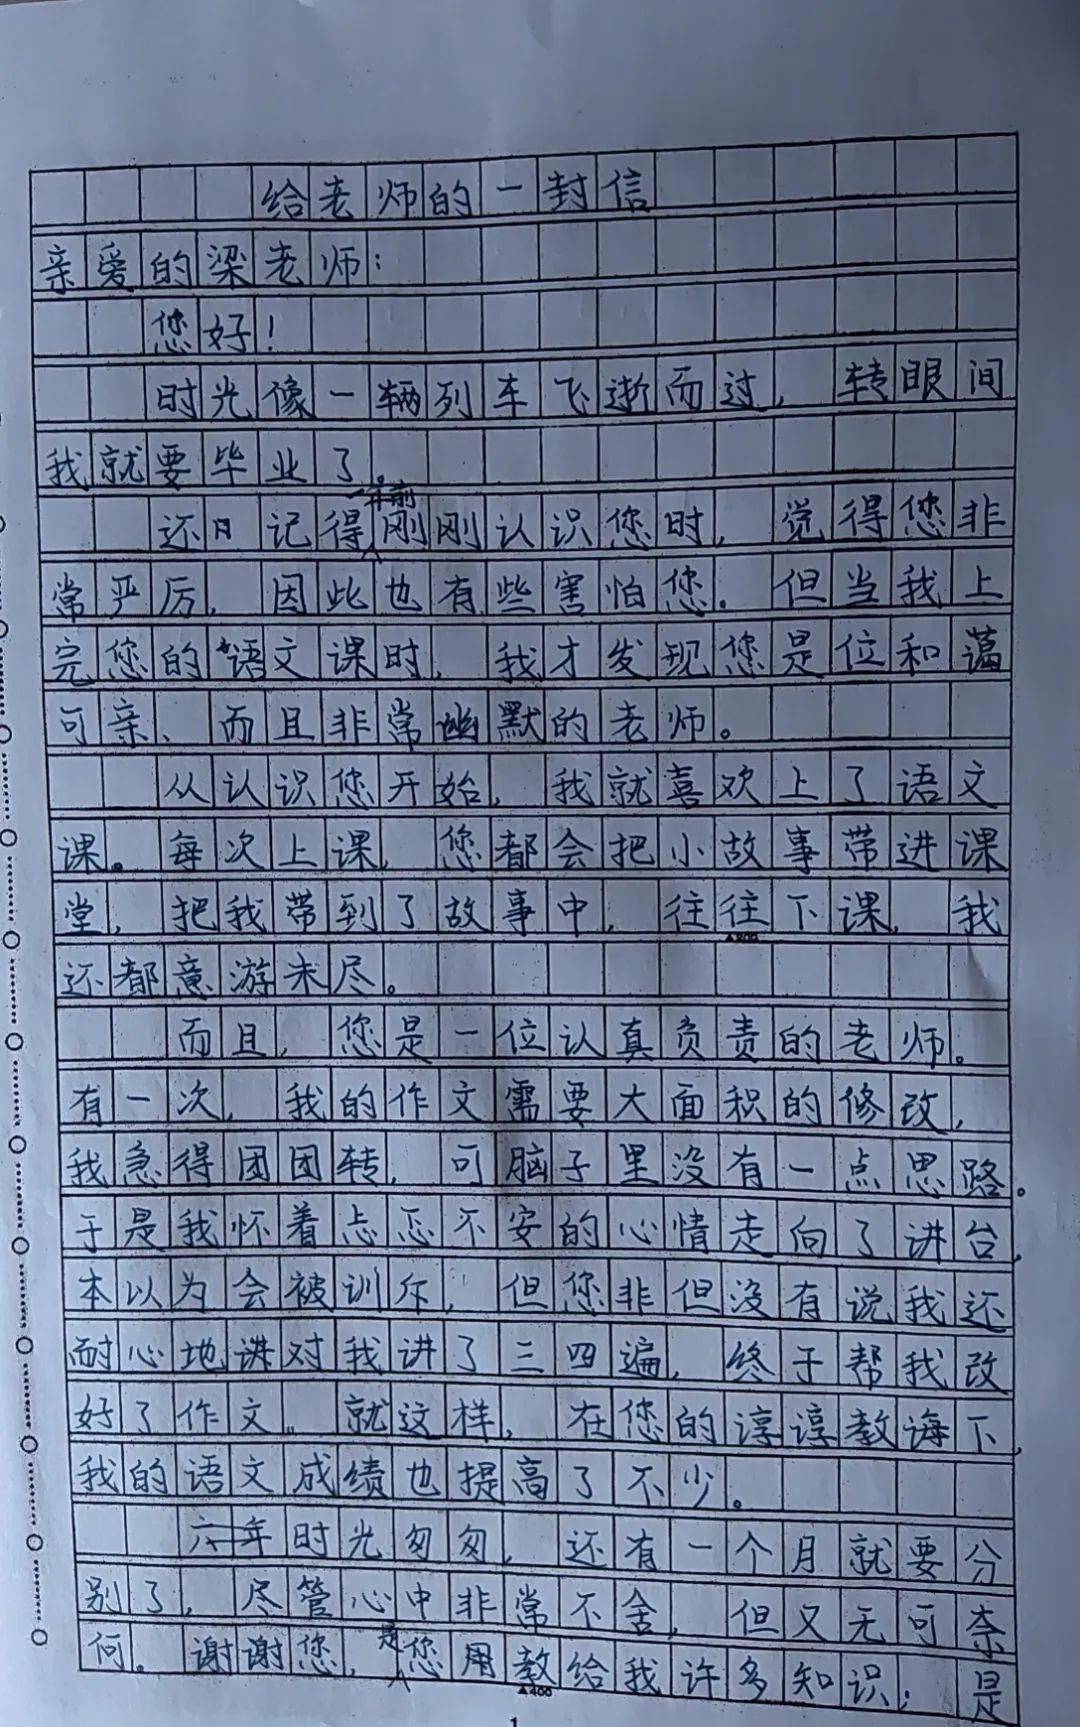 给老师的一封信
亲爱的梁老师：
您好！
时光像一辆列车飞逝而过，转眼间
我就要毕业了。
还记得一年前刚刚认识您时，觉得您非
常严厉，因此也有些害怕您。但当我上
完您的语文课时，我才发现您是位和蔼
可亲、而且非常幽默的老师。
从认识您开始，我就喜欢上了语文
课。每次上课，您都会把小故事带进课
堂，把我带到了故事中，往往下课，我
还都意游未尽。
而且，您是一位认真负责的老师。
有一次，我的作文需要大面积的修改，
我急得团团转，可脑子里没有一点思路。
于是我怀着忐忑不安的心情走向了讲台，
本以为会被训斥，但您非但没有说我还
耐心地对我讲了三四遍，终于帮我改
好了作文。就这样，在您的谆谆教诲下，
我的语文成绩也提高了不少。
▲200
时光匆匆，还有一个月就要分
别了，尽管心中非常不舍，但又无可奈
何。谢谢您，是您教给我许多知识；是
▲400
1